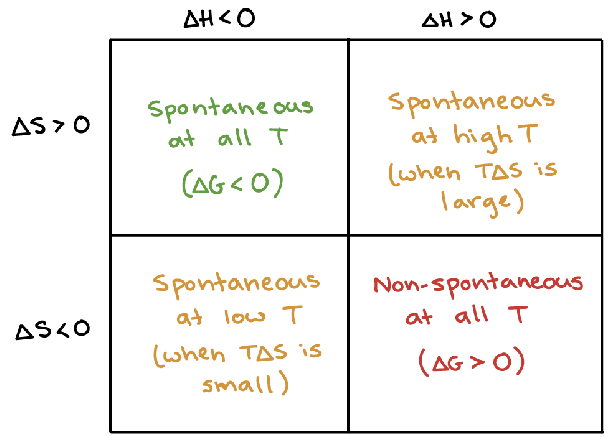 ΔH < 0
ΔH > 0
ΔS > 0
Spontaneous
at all T
(ΔG < 0)
Spontaneous
at high T
(when TΔS is
large)
ΔS < 0
Spontaneous
at low T
(when TΔS is
small)
Non-spontaneous
at all T
(ΔG > 0)